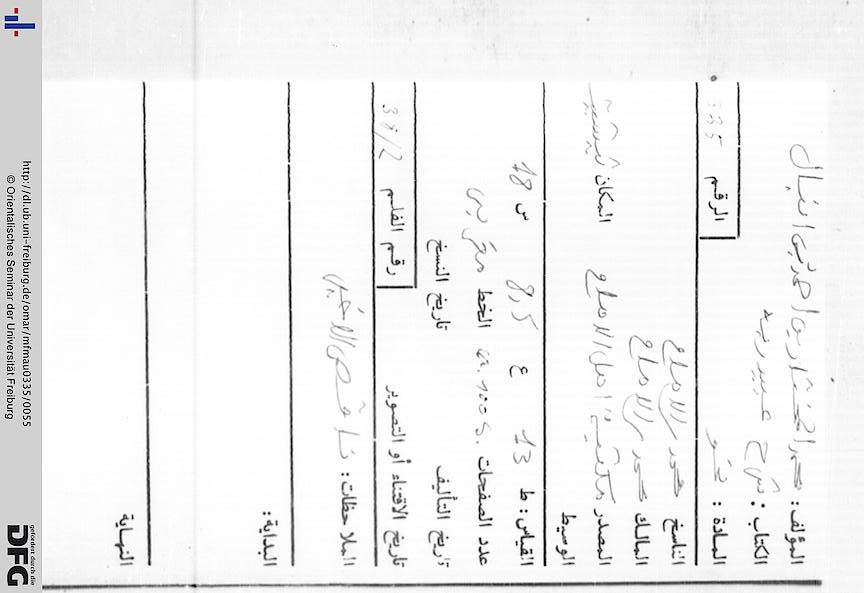 المؤلف: محمد المختار بن احمد بن امبال
الكتاب: شرح عبيد ربه
المادة: نحو الرقم 335
الناسخ محمد الامام
المالك محمد الامام
المصدر مكتبة اهل الامام المكان تيشيت
الوسيط
القياس: ط 13 ع 8,5 س 18
عدد الصفحات ca. 100 S. الخط مغربي
تاريخ التأليف تاريخ النسخ
تاريخ الاقتناء أو التصوير رقم الفلم 38/2
الملاحظات: ناقص الاخير
البداية:
النهاية
http://dl.ub.uni-freiburg.de/omar/mfmau0335/0055
© Orientalisches Seminar der Universität Freiburg
gefördert durch die
DFG